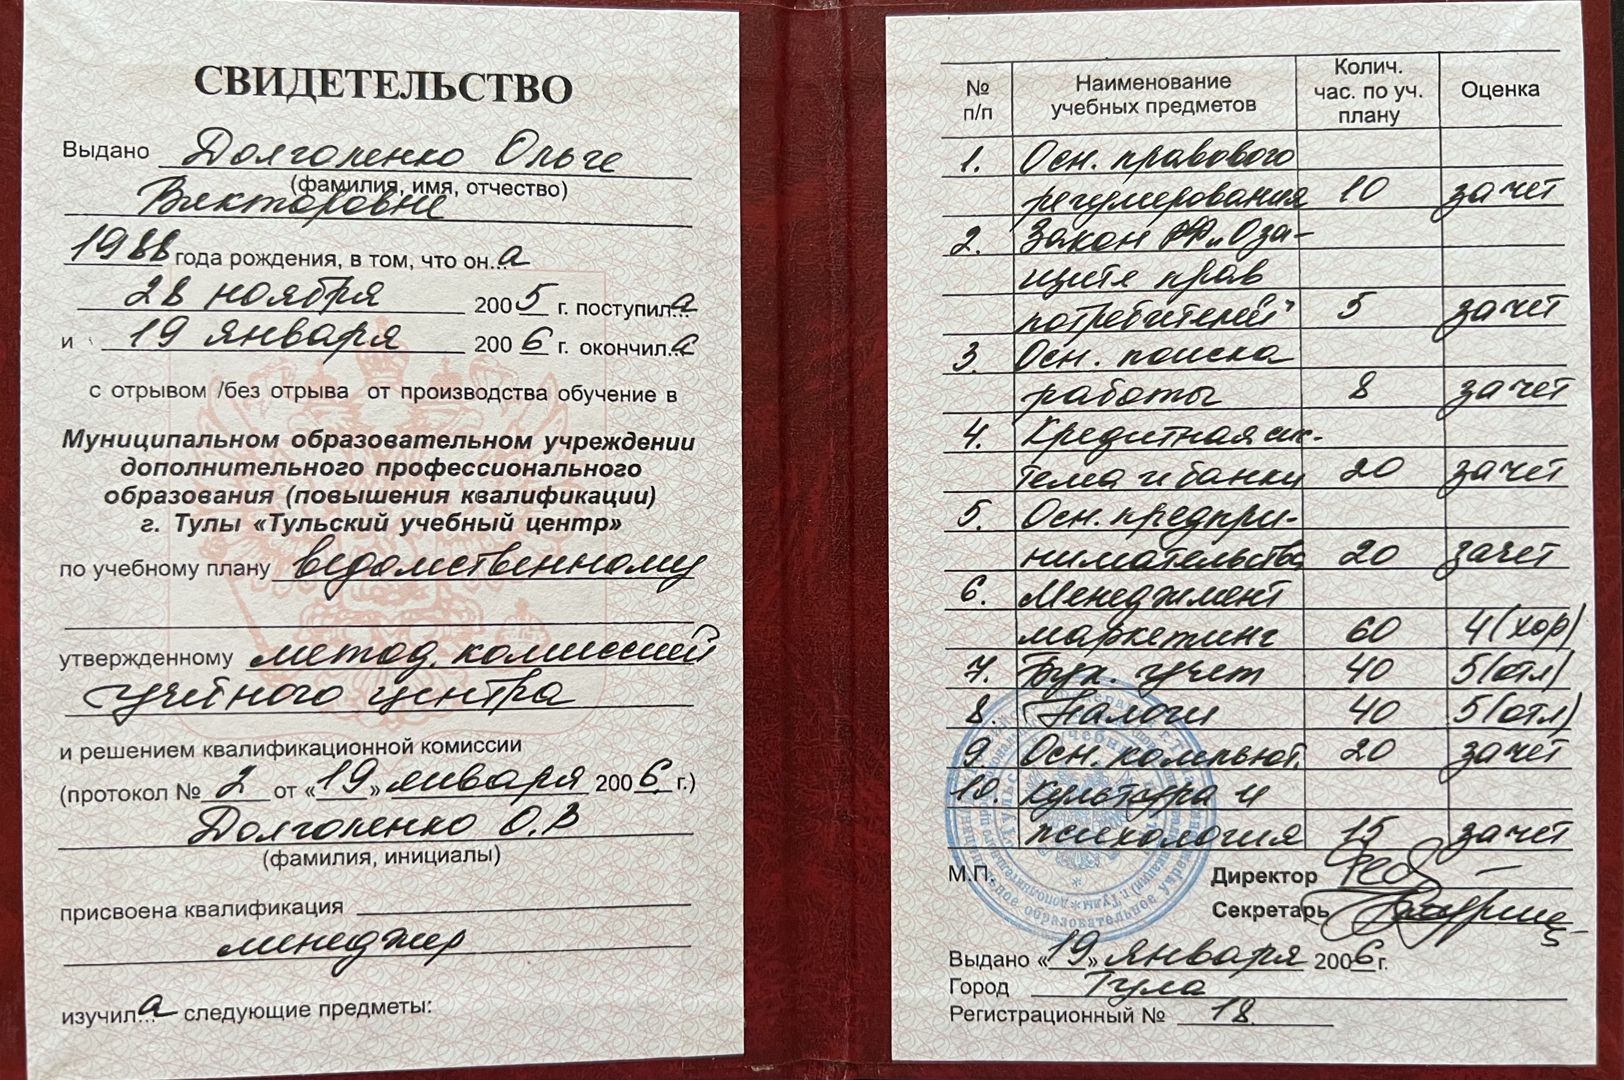 СВИДЕТЕЛЬСТВО
Выдано Долголенко Ольге
(фамилия, имя, отчество)
Викторовне
1988 года рождения, в том, что он...а
28 ноября 2005 г. поступил...а
и 19 января 2006 г. окончил...а
с отрывом /без отрыва от производства обучение в
Муниципальном образовательном учреждении
дополнительного профессионального
образования (повышения квалификации)
г. Тулы «Тульский учебный центр»
по учебному плану ведомственному
утвержденному метод. комиссией
учебного центра
и решением квалификационной комиссии
(протокол № 2 от «19» января 2006 г.)
Долголенко О.В
(фамилия, инициалы)
присвоена квалификация
менеджер
изучил...а следующие предметы:
№ п/п Наименование учебных предметов Колич. час. по уч. плану Оценка
1. Осн. правового
регулирования 10 зачет
2. Закон РФ "О за-
щите прав
потребителей" 5 зачет
3. Осн. поиска
работы 8 зачет
4. Кредитная сис-
тема и банки 20 зачет
5. Осн. предпри-
нимательства 20 зачет
6. Менеджмент
маркетинг 60 4(хор)
7. Бух. учет 40 5(отл)
8. Налоги 40 5(отл)
9. Осн. компьют. 20 зачет
10. Культура и
психология 15 зачет
М.П. Директор
Секретарь
Выдано «19» января 2006 г.
Город Тула
Регистрационный № 18.